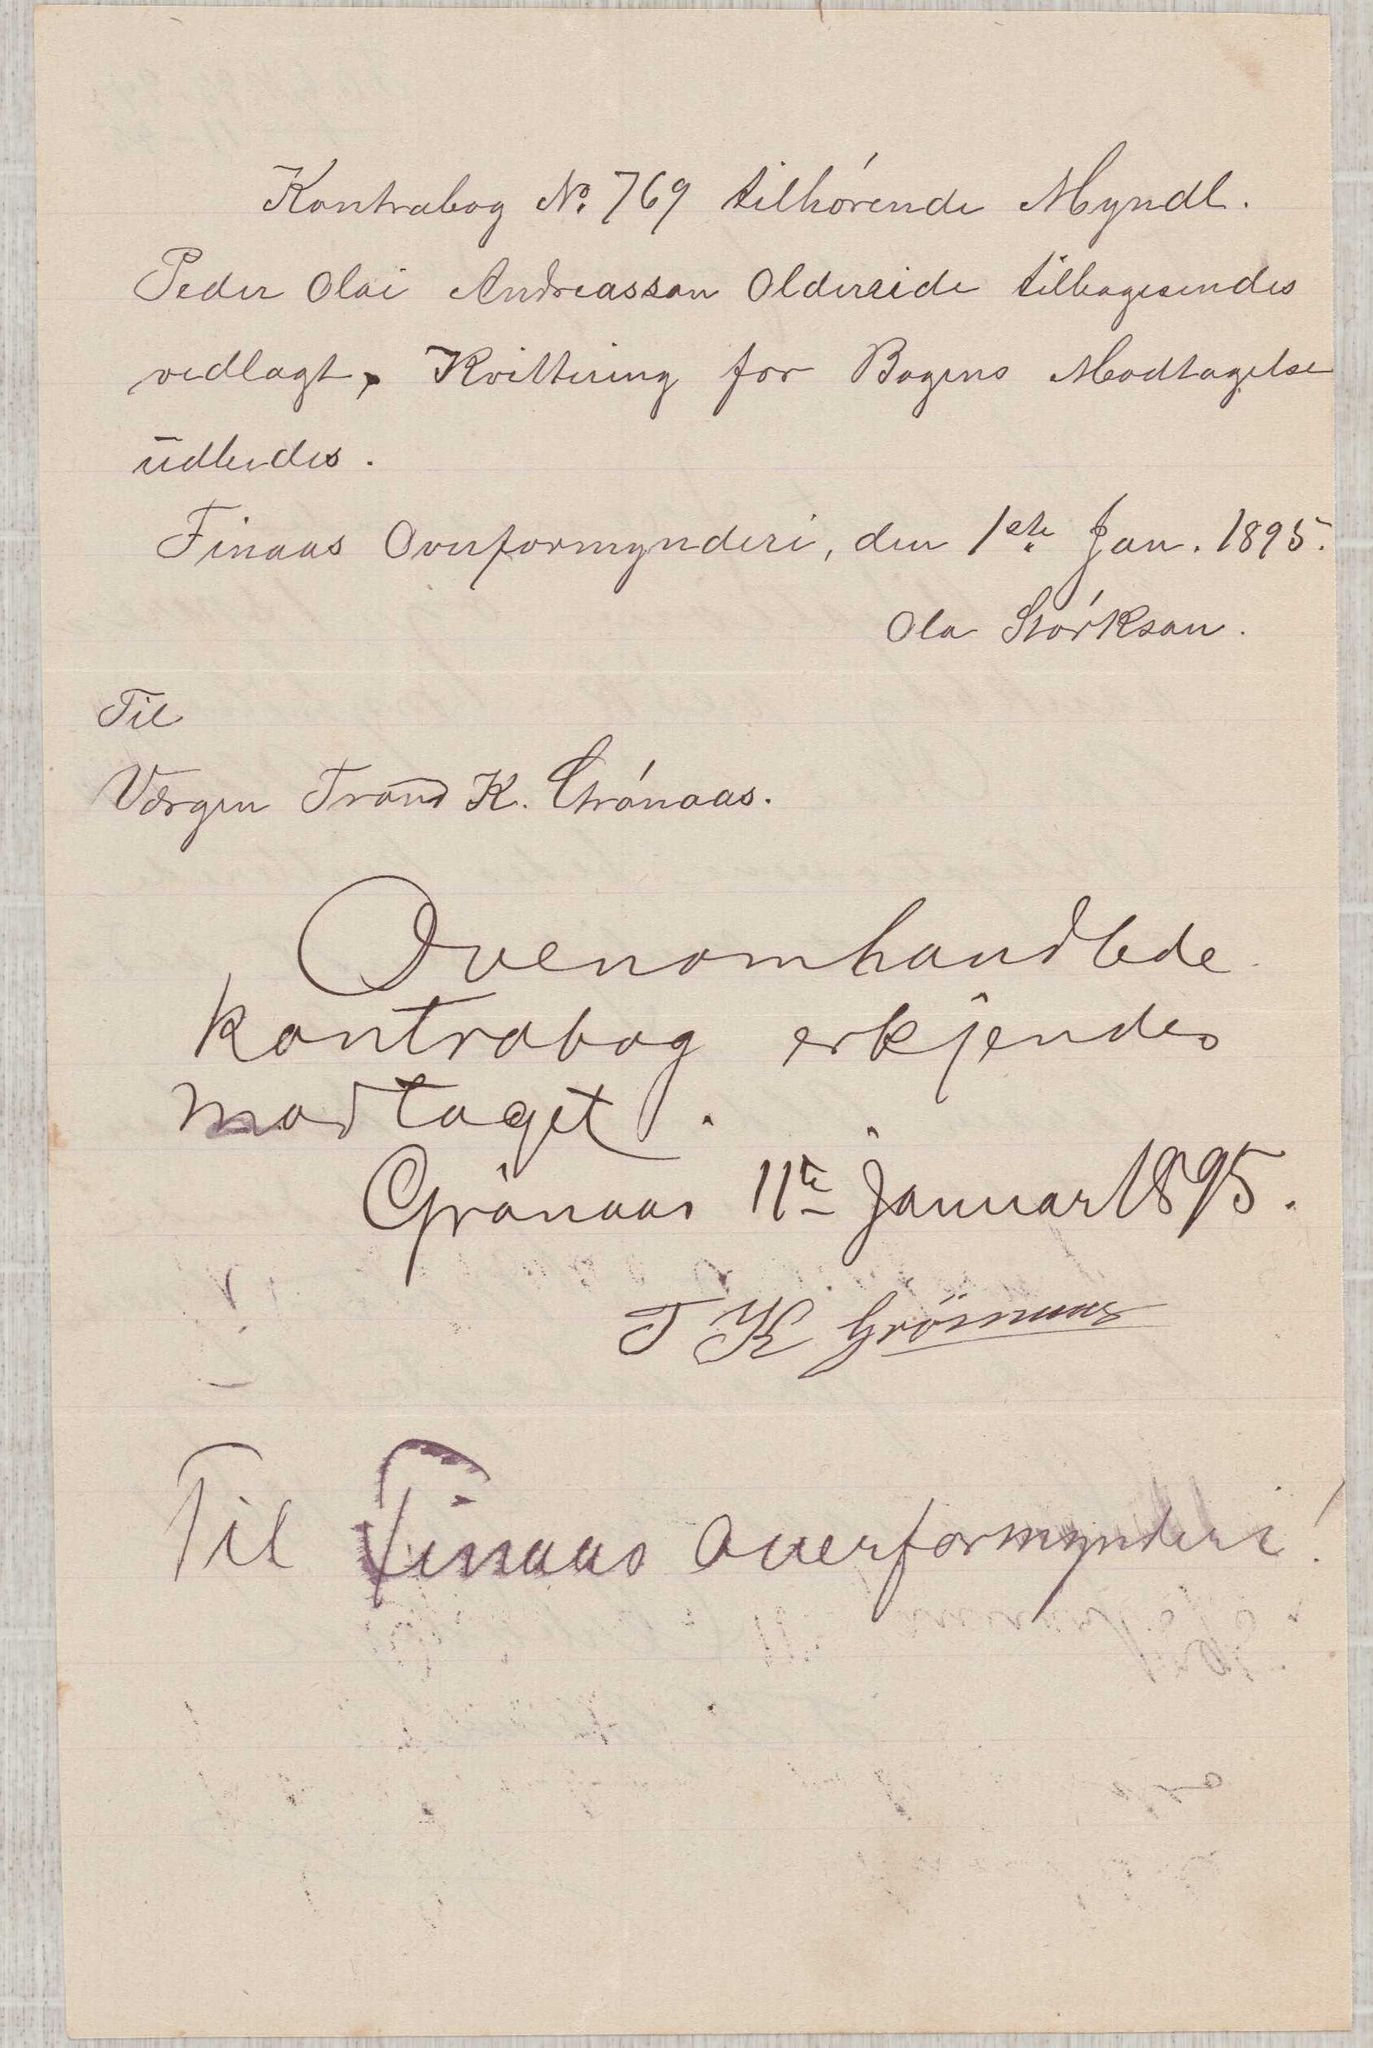 Kontrabog No. 769 tilhørende Myndl.
Peder Olai Andreasson Olderside tilbagesendes
vedlagt, Kvittering for Bogens Modtagelse
udbedes.
Finaas Overformynderi, den 1ste Jan. 1895.
Ola Størkson.
Til
Værgen Trond K. Grønaas.
Ovenomhandlede
kontrabog erkjendes
modtaget.
Grönaas 11te januar 1895.
T K Grönnaas
Til Finaas Overformynderi!